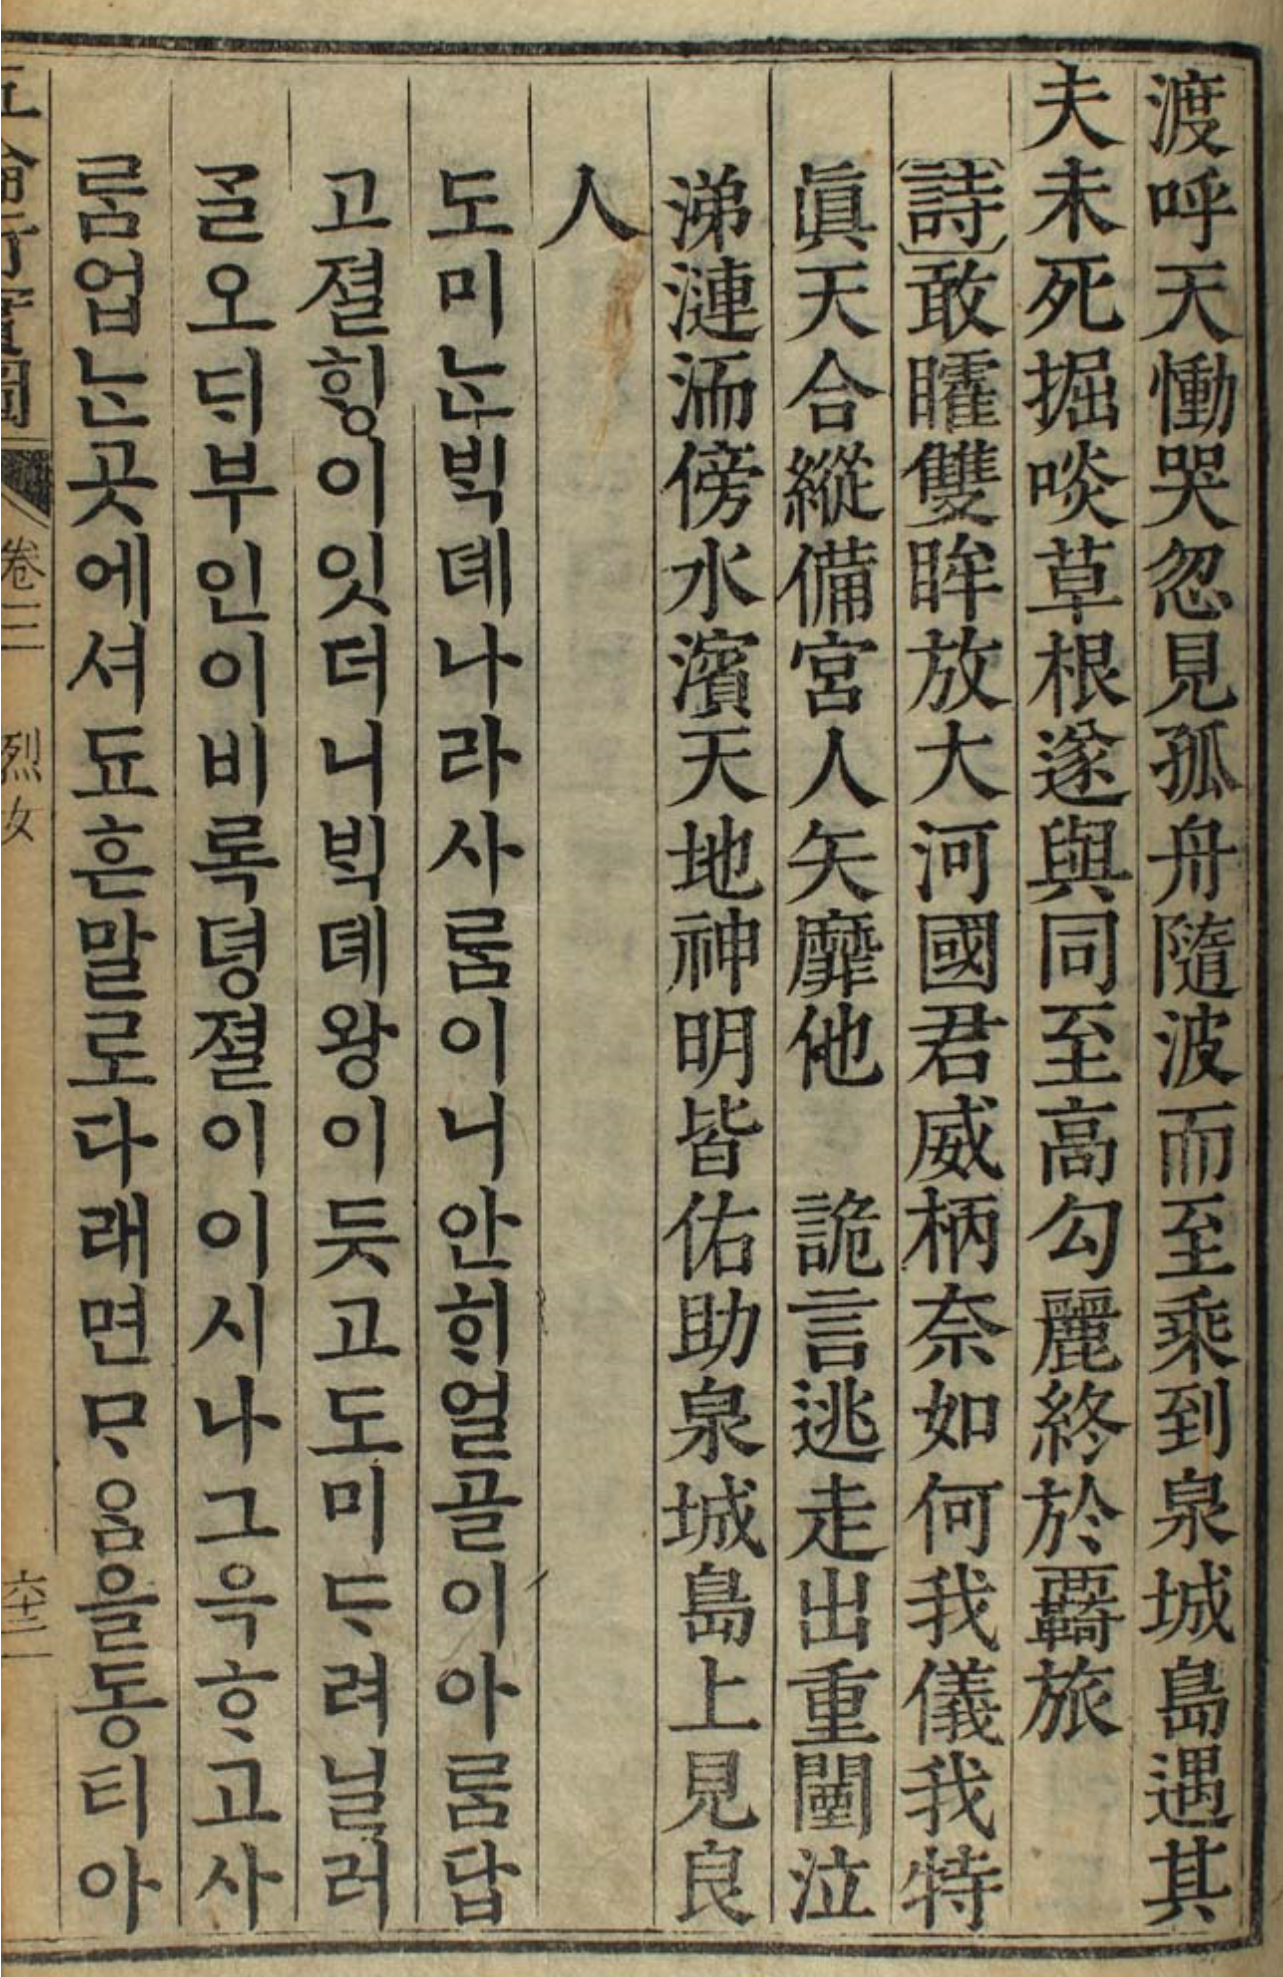 渡呼天慟哭忽見孤舟隨波而至乘到泉城島遇其
夫未死掘啖草根遂與同至高勾麗終於覉旅
[詩]敢矐雙眸放大河國君威柄奈如何我儀我特
眞天合縱備宮人矢靡他 詭言逃走出重闉泣
涕漣洏傍水濱天地神明皆佑助泉城島上見良
人
도미ᄂᆞᆫᄇᆡᆨ뎨나라사ᄅᆞᆷ이니안ᄒᆡ얼골이아ᄅᆞᆷ답
고졀ᄒᆡᆼ이잇더니ᄇᆡᆨ뎨왕이듯고도미ᄃᆞ려닐러
ᄀᆞᆯ오ᄃᆡ부인이비록뎡졀이이시나그윽ᄒᆞ고사
ᄅᆞᆷ업ᄂᆞᆫ곳에셔됴흔말로다래면ᄆᆞ음을동티아
五倫行實圖 卷三 烈女 六十二